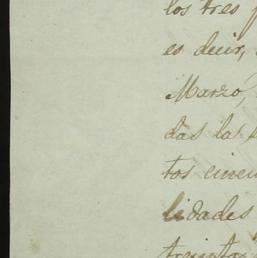 los tres
es decir,
Marzo,
das las
tos cinen
lidades
treinta